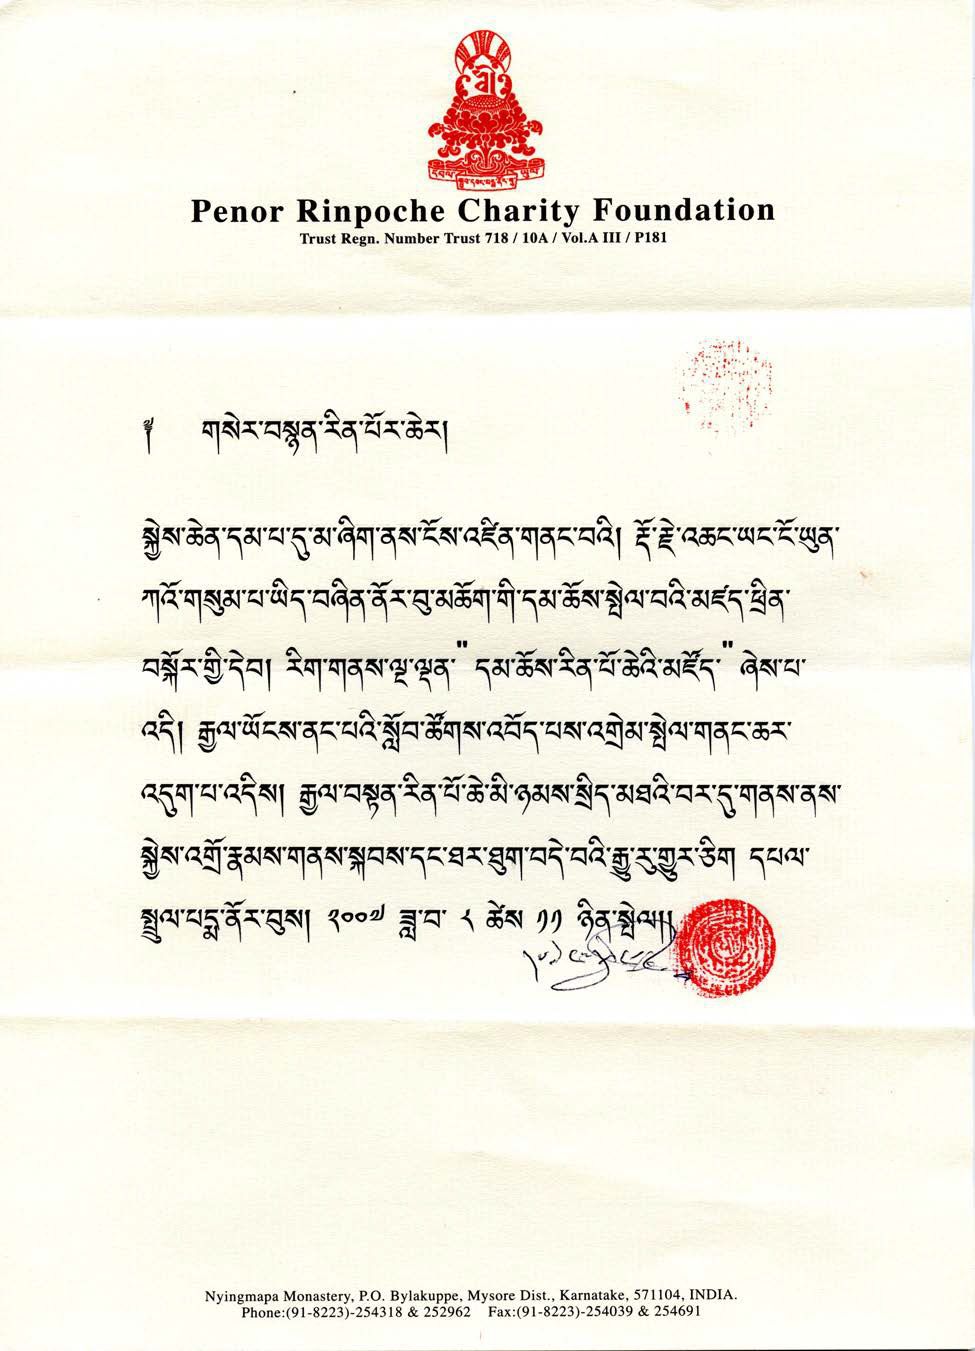 Penor Rinpoche Charity Foundation
Trust Regn. Number Trust 718 / 10A / Vol.A III / P181
༈ གསེར་བསྙན་རིན་པོར་ཆེར།
སྐྱེས་ཆེན་དམ་པ་དུ་མ་ཞིག་ནས་ངོས་འཛིན་གནང་བའི། རྡོ་རྗེ་འཆང་ཡང་ངོ་ཡུན་
ཀའོ་གསུམ་པ་ཡིད་བཞིན་ནོར་བུ་མཆོག་གི་དམ་ཆོས་སྤེལ་བའི་མཛད་ཕྲིན་
བསྐོར་གྱི་དེབ། རིག་གནས་ལྔ་ལྡན་" དམ་ཆོས་རིན་པོ་ཆེའི་མཛོད་" ཞེས་པ་
འདི། རྒྱལ་ཡོངས་ནང་པའི་སློབ་ཚོགས་འབོད་པས་འགྲེམ་སྤེལ་གནང་ཆར་
འདུག་པ་འདིས། རྒྱལ་བསྟན་རིན་པོ་ཆེ་མི་ཉམས་སྲིད་མཐའི་བར་དུ་གནས་ནས་
སྐྱེས་འགྲོ་རྣམས་གནས་སྐབས་དང་ཐར་ཐུག་བདེ་བའི་རྒྱུ་རུ་གྱུར་ཅིག དཔལ་
སྤྲུལ་པདྨ་ནོར་བུས། ༢༠༠༧ ཟླ་བ་ ༨ ཚེས ༡༡ ཉིན་སྤེལ།།
Nyingmapa Monastery, P.O. Bylakuppe, Mysore Dist., Karnatake, 571104, INDIA.
Phone:(91-8223)-254318 & 252962 Fax:(91-8223)-254039 & 254691